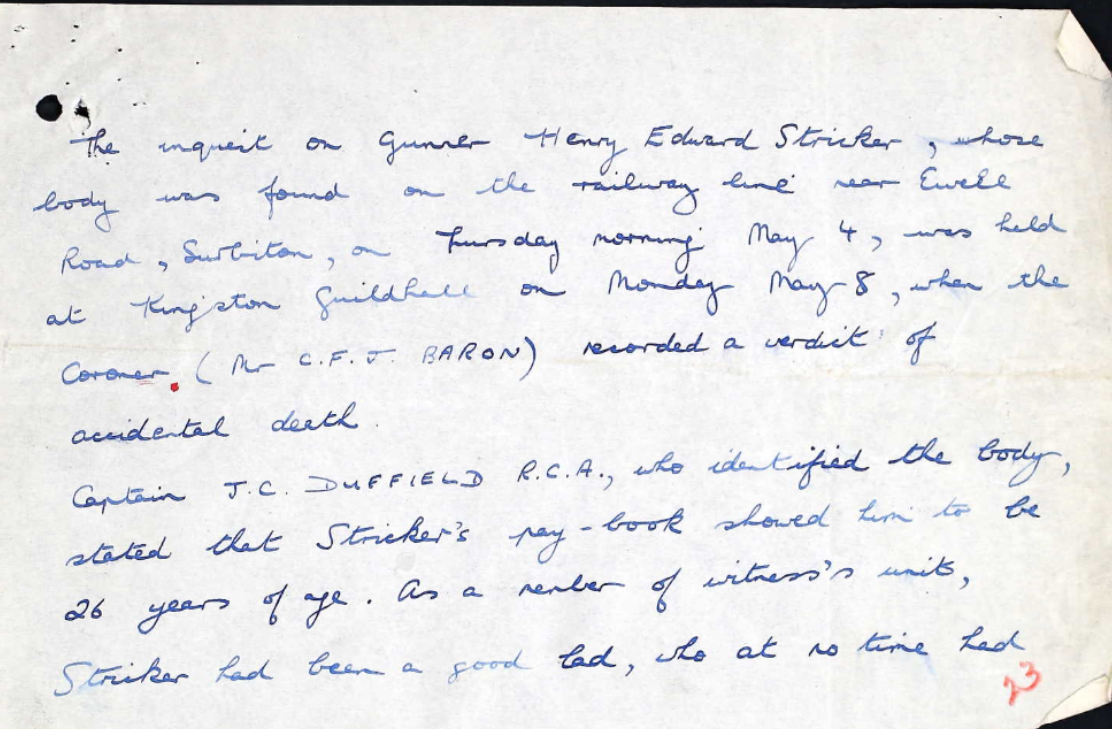 The inquest on Gunner Henry Edward Stricker, whose
body was found on the railway line near Ewell
Road, Surbiton, on Thursday morning May 4, was held
at Kingston Guildhall on Monday May 8, when the
Coroner. (Mr C.F.J. BARON) recorded a verdict of
accidental death.
Captain J.C. DUFFIELD R.C.A., who identified the body,
stated that Stricker's pay-book showed him to be
26 years of age. As a member of witness's unit,
Stricker had been a good lad, who at no time had
23